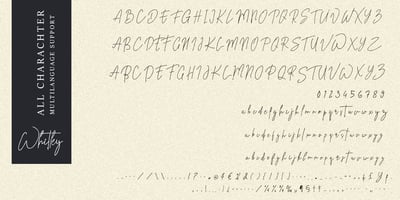 ALL CHARACHTER
MULTILANGUAGE SUPPORT
Whitley
ABCDEFGHIJKLMNOPQRSTUVWXYZ
ABCDEFGHIJKLMNOPQRSTUVWXYZ
ABCDEFGHIJKLMNOPQRSTUVWXYZ
0123456789
abcdefghijklmnopqrstuvwxyz
abcdefghijklmnopqrstuvwxyz
abcdefghijklmnopqrstuvwxyz